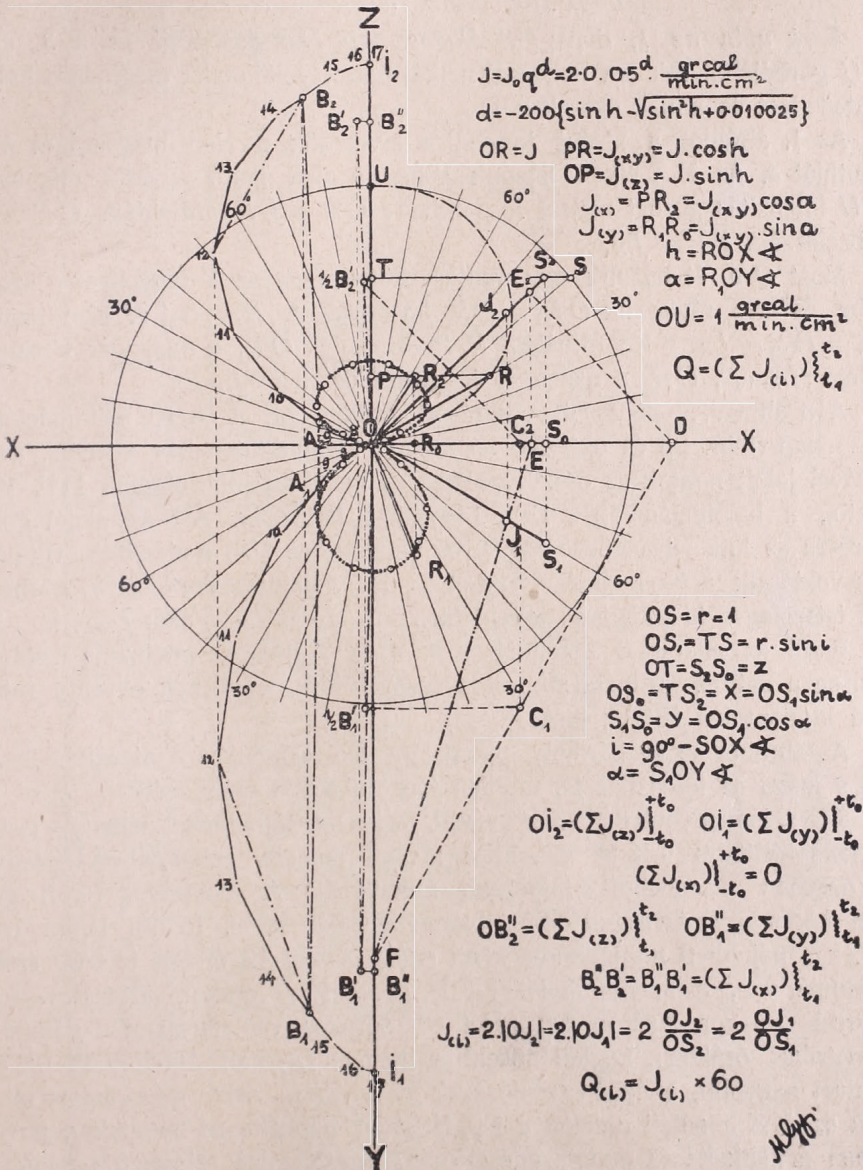 Z
15 16 17 i₂
14 B₂ B₂' B₂''
13
60° U 60°
12
½B₂' T E₂ S₂ S
30° J₂ 30°
11
10 P R₂ R
X A₂ O R₀ C₂ E S₀ D X
A₁ 9
10 J₁ S₁
R₁
60° 60°
11
30° 30°
½B₁' C₁
12
13
F
14 B₁' B₁''
B₁ 15
16 17 i₁
Y
J=J₀qᵈ=2·0. 0·5ᵈ. grcal/min.cm²
d=-200{sinh-√sin²h+0·010025}
OR=J PR=J₍ₓy₎=J.cosh
OP=J₍z₎=J.sinh
J₍ₓ₎=PR₂=J₍ₓy₎cosα
J₍y₎=R₁R₀=J₍ₓy₎.sinα
h=ROX∢
α=R₁OY∢
OU=1 grcal./min.cm²
Q=(∑J₍ᵢ₎)}t₂ t₁
OS=r=1
OS₁=TS=r.sini
OT=S₂S₀=z
OS₀=TS₂=X=OS₁sinα
S₁S₀=y=OS₁.cosα
i=90°-SOX∢
α=S₁OY∢
Oi₂=(∑J₍z₎)|+t₀ -t₀ Oi₁=(∑J₍y₎)|+t₀ -t₀
(∑J₍ₓ₎)|+t₀ -t₀=0
OB₂''=(∑J₍z₎)}t₂ t₁ OB₁''=(∑J₍y₎)}t₂ t₁
B₂''B₂'=B₁''B₁'=(∑J₍ₓ₎)}t₂ t₁
J₍ᵢ₎=2.|OJ₂|=2.|OJ₁|=2 OJ₂/OS₂=2 OJ₁/OS₁
Q₍ᵢ₎=J₍ᵢ₎×60